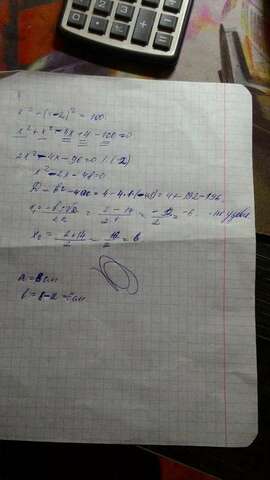 x² + (x-2)² = 100
x² + x² - 4x + 4 - 100 = 0
2x² - 4x - 96 = 0 | (:2)
x² - 2x - 48 = 0
D = b² - 4ac = 4 - 4·1·(-48) = 4 + 192 = 196
x₁ = = 2 - 14 / 2·1 = -12 / 2 = -6 - не удов
x₂ = 2 + 14 / 2 = 16 / 2 = 8
a = 8 см
b = 8 - 2 = 6 см